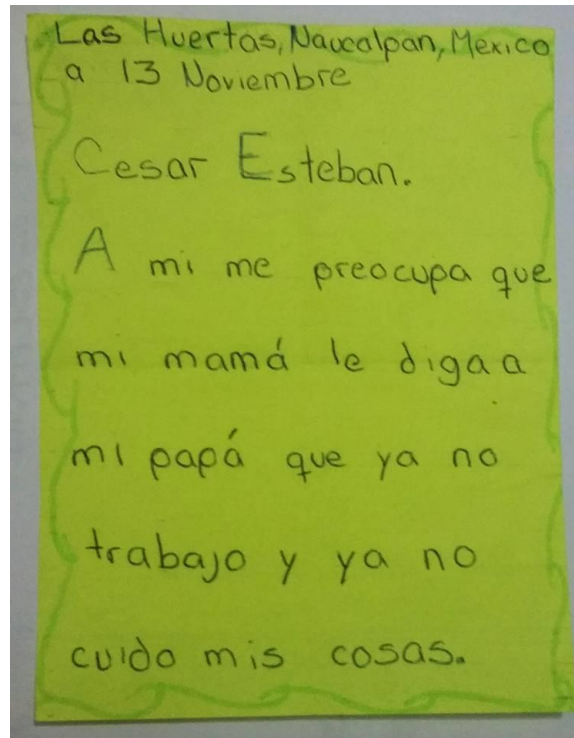 Las Huertas, Naucalpan, Mexico
a 13 Noviembre
Cesar Esteban.
A mi me preocupa que
mi mamá le diga a
mi papá que ya no
trabajo y ya no
cuido mis cosas.